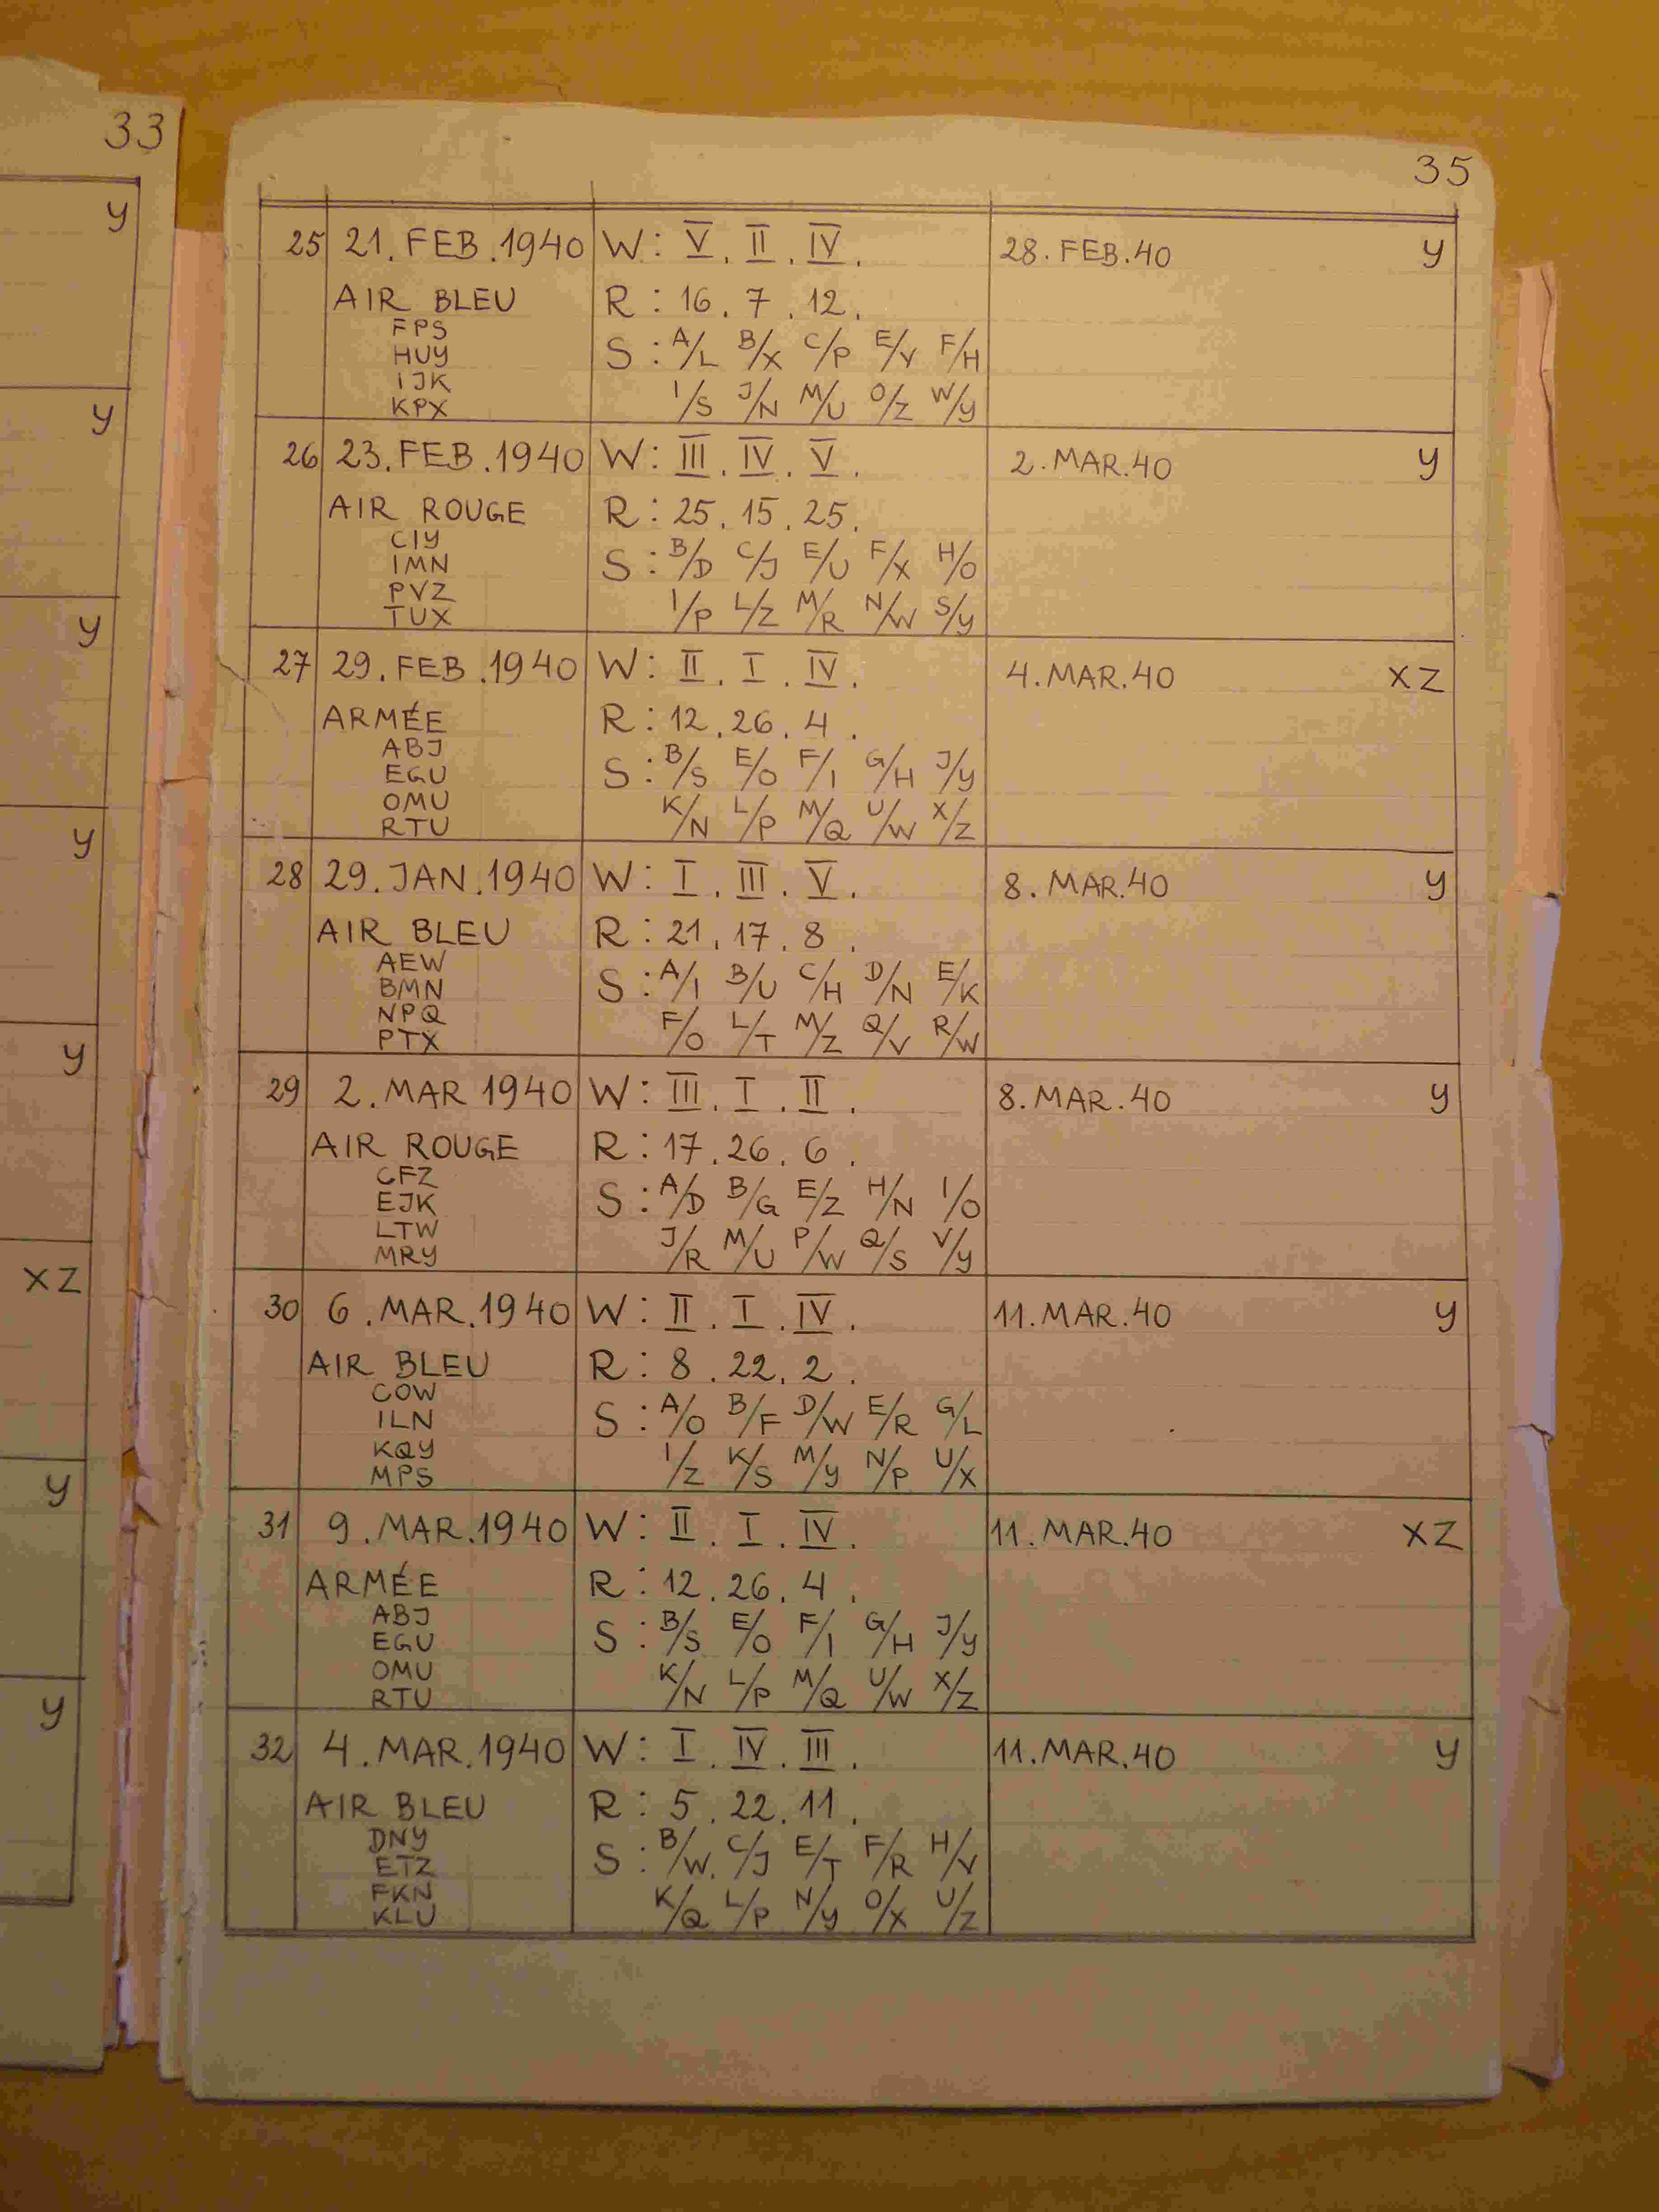 33
y
y
y
y
y
XZ
y
y
35
25 21. FEB. 1940 W: V. II. IV. 28. FEB. 40 y
AIR BLEU R: 16. 7. 12.
FPS
HUY S: A/L B/X C/P E/V F/H
IJK
KPX I/S J/N M/U O/Z W/y
26 23. FEB. 1940 W: III. IV. V. 2. MAR. 40 y
AIR ROUGE R: 25. 15. 25.
CIY
IMN S: B/D C/J E/U F/X H/O
PVZ
TUX I/P L/Z M/R N/W S/y
27 29. FEB. 1940 W: II. I. IV. 4. MAR. 40 XZ
ARMÉE R: 12. 26. 4.
ABJ
EGU S: B/S E/O F/I G/H J/y
OMU
RTU K/N L/P M/Q U/W X/Z
28 29. JAN. 1940 W: I. III. V. 8. MAR. 40 y
AIR BLEU R: 21. 17. 8.
AEW
BMN S: A/I B/U C/H D/N E/K
NPQ
PTX F/O L/T M/Z Q/V R/W
29 2. MAR 1940 W: III. I. II. 8. MAR. 40 y
AIR ROUGE R: 17. 26. 6.
CFZ
EJK S: A/D B/G E/Z H/N I/O
LTW
MRY J/R M/U P/W Q/S V/y
30 6. MAR. 1940 W: II. I. IV. 11. MAR. 40 y
AIR BLEU R: 8. 22. 2.
COW
ILN S: A/O B/F D/W E/R G/L
KQY
MPS I/Z K/S M/y N/P U/X
31 9. MAR. 1940 W: II. I. IV. 11. MAR. 40 XZ
ARMÉE R: 12. 26. 4.
ABJ
EGU S: B/S E/O F/I G/H J/y
OMU
RTU K/N L/P M/Q U/W X/Z
32 4. MAR. 1940 W: I. IV. III. 11. MAR. 40 y
AIR BLEU R: 5. 22. 11.
DNY
ETZ S: B/W. C/J E/T F/R H/V
FKN
KLU K/Q L/P N/y O/X U/Z